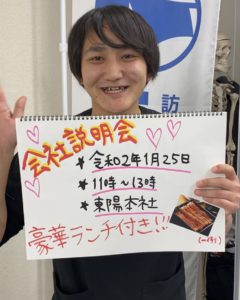 訪
会社説明会
★令和2年1月25日
★11時~13時
★東陽本社
豪華ランチ付き!!!